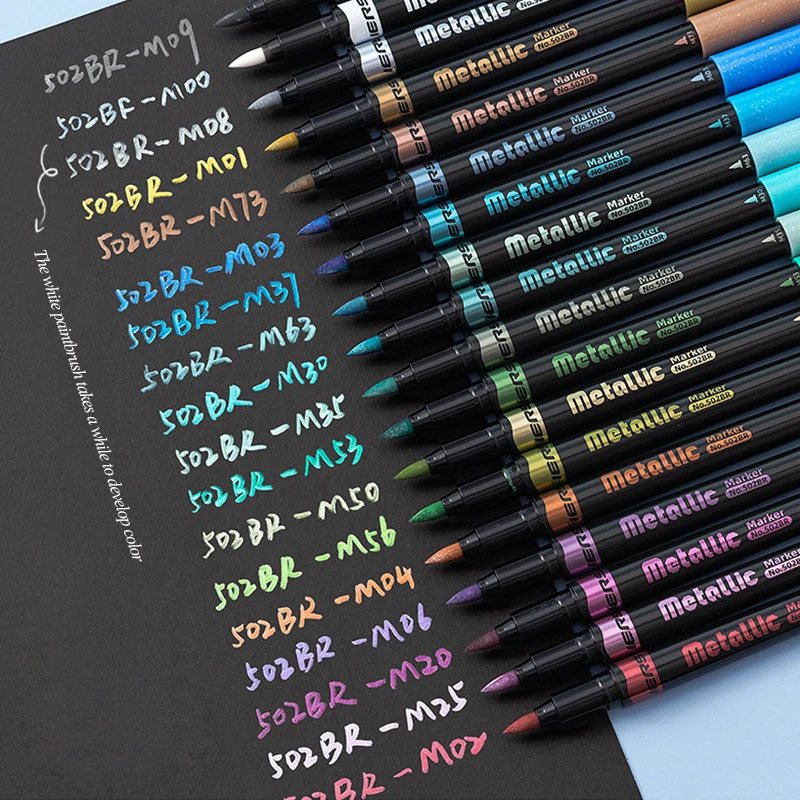 502BR-M09
502BF-M00
502BR-M08
502BR-M01
502BR-M73
502BR-M03
502BR-M37
502BR-M63
502BR-M30
502BR-M35
502BR-M53
502BR-M50
502BR-M56
502BR-M04
502BR-M06
502BR-M20
502BR-M25
502BR-M02
The white paintbrush takes a while to develop color
Metallic
Metallic
Marker
No.502BR
Metallic
Marker
No.502BR
Metallic
Marker
No.502BR
Metallic
Marker
No.502BR
Metallic
Marker
No.502BR
Metallic
Marker
No.502BR
Metallic
Marker
No.502BR
Metallic
Marker
No.502BR
Metallic
Marker
No.502BR
Metallic
Marker
No.502BR
Metallic
Marker
No.502BR
Metallic
Marker
No.502BR
Metallic
Marker
No.502BR
Metallic
Marker
No.502BR
Metallic